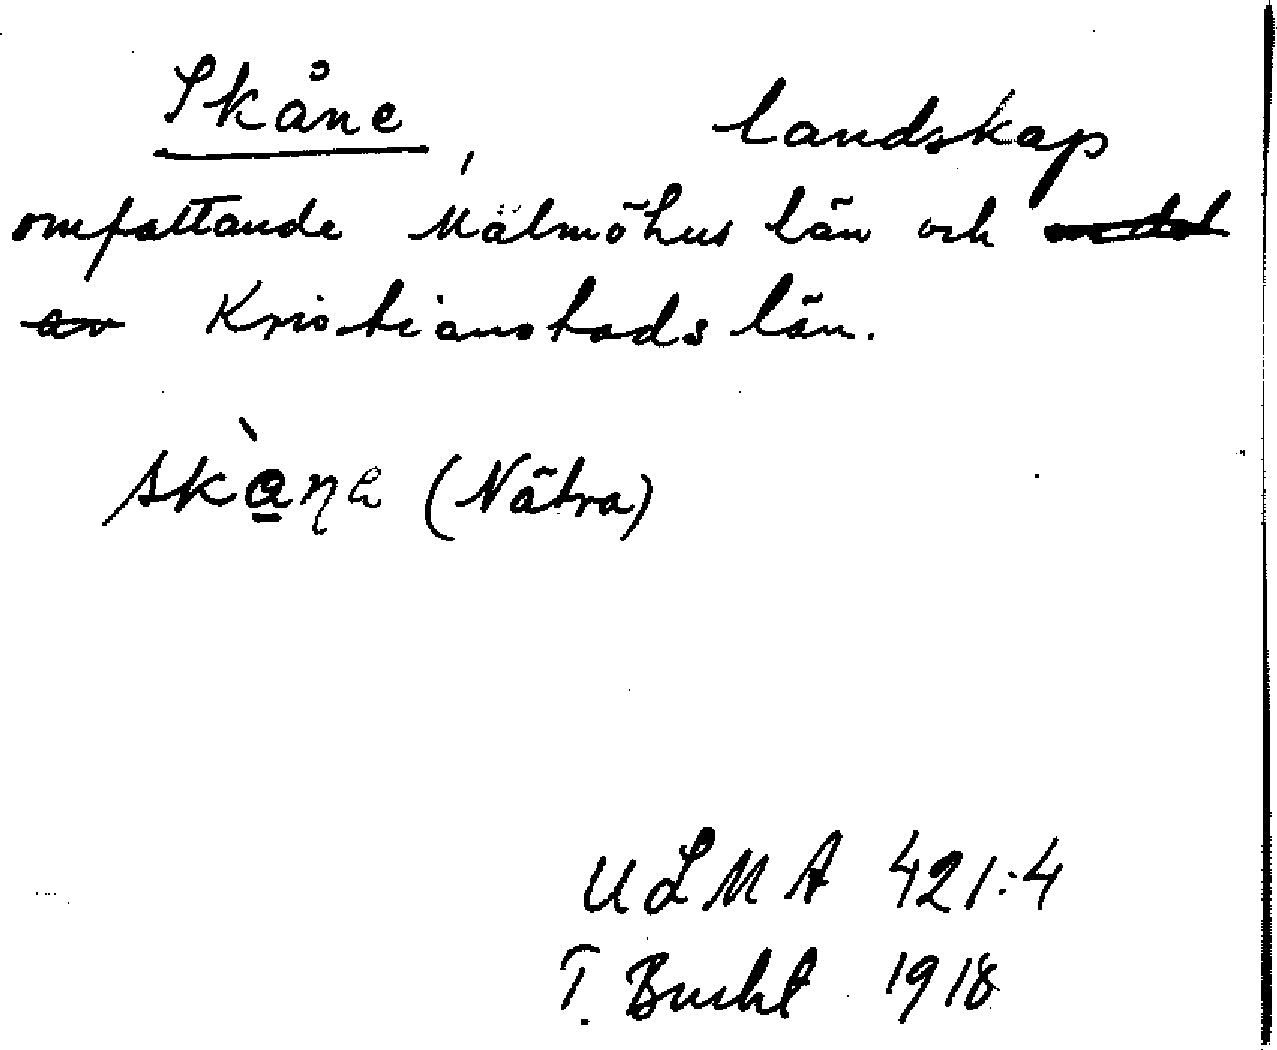 Skåne, landskap
omfattande Malmöhus län och
av Kristianstads län.
skànə (Nätra)
ULMA 421:4
T. Bucht 1918